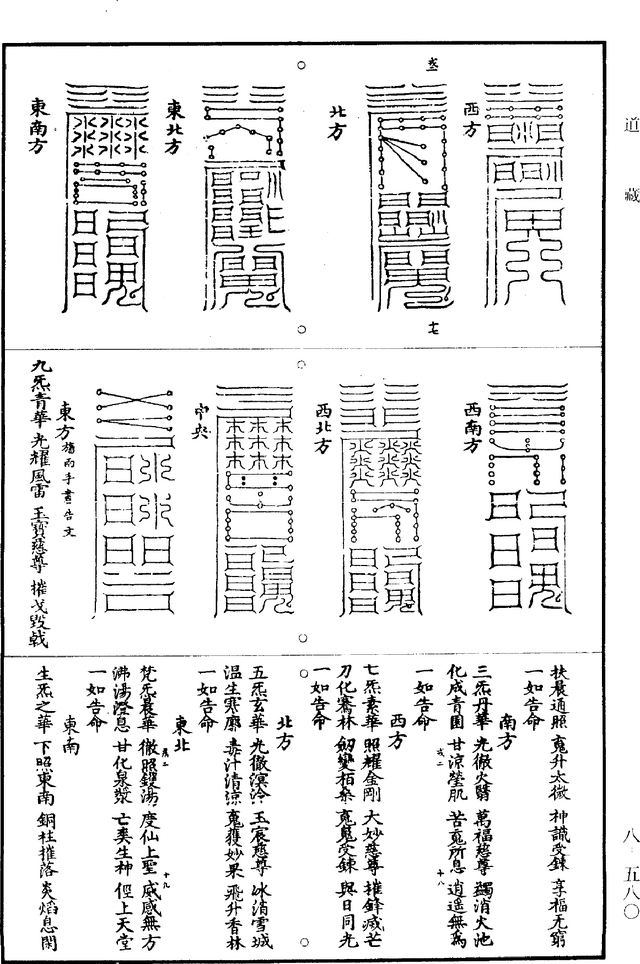 道藏
西方
北方
東北方
東南方
十七
西南方
西北方
中央
東方
九炁青華 光耀風雷 玉寶慈尊 摧戈毀戟
扶晨通照 䰟升太微 神識受鍊 享福无窮
一如告命
南方
三炁丹華 光徹火翳 萬福慈尊 蠲消火池
化成青園 甘涼瑩肌 苦䰟所息 逍遥無爲
一如告命
西方
七炁素華 照耀金剛 大妙慈尊 摧鋒滅芒
刀化騫林 劒變栢桑 䰟䰟受鍊 與日同光
一如告命
北方
五炁玄華 光徹溟泠 玉宸慈尊 冰消雪城
温生寒廓 毒汁清涼 䰟獲妙果 飛升香林
一如告命
東北
梵炁晨華 徹照鑊湯 度仙上聖 威感無方
沸湯澄息 甘化泉漿 亡爽生神 俓上天堂
一如告命
東南
生炁之華 下照東南 銅柱摧落 炎焰息閑
十八
十九
八·五八〇